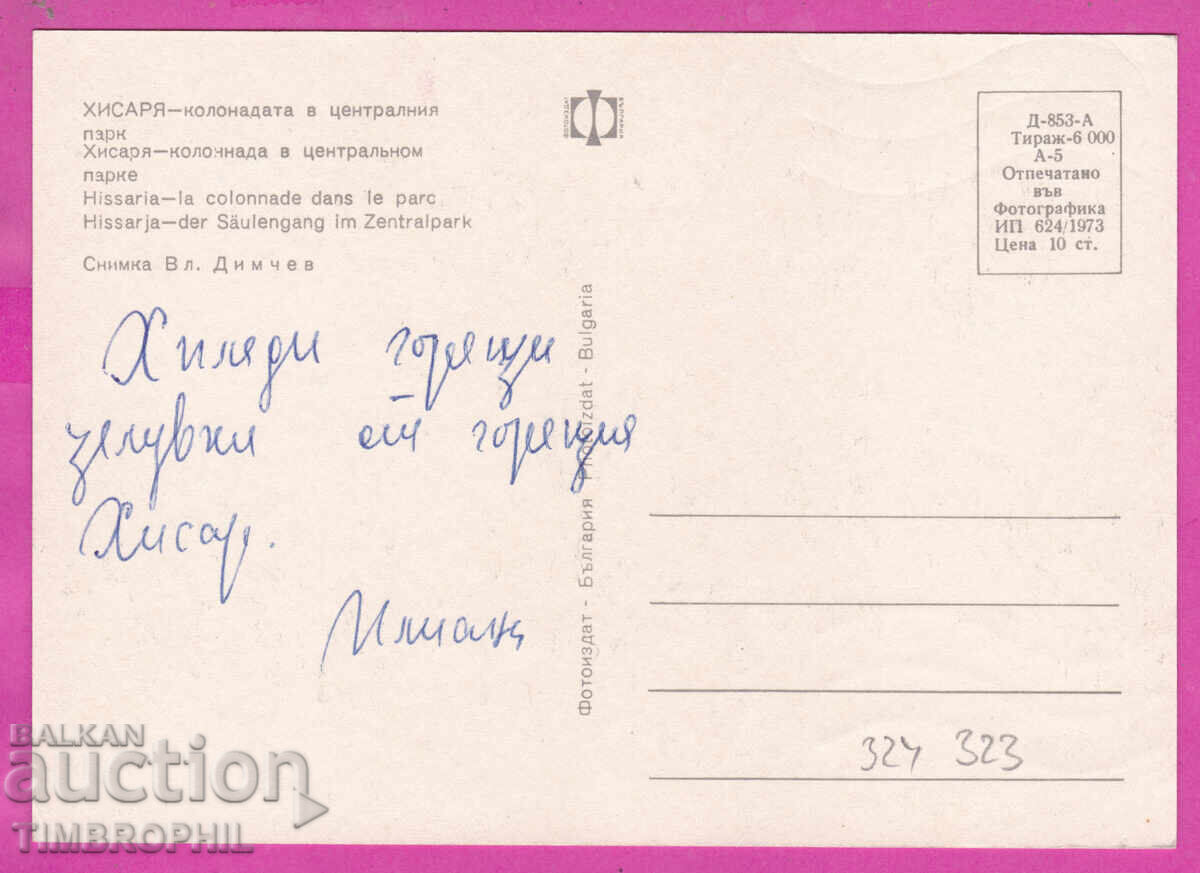 ХИСАРЯ—колонадата в централния
парк
Хисаря—колоннада в центральном
парке
Hissaria—la colonnade dans le parc
Hissarja—der Säulengang im Zentralpark
Снимка Вл. Димчев
Хиляди горещи
целувки от горещия
Хисар.
Илиана
ФОТОИЗДАТ
БЪЛГАРИЯ
Фотоиздат - България Photoizdat - Bulgaria
Д-853-А
Тираж-6 000
А-5
Отпечатано
във
Фотографика
ИП 624/1973
Цена 10 ст.
324 323
BALKAN
auction
TIMBROPHIL